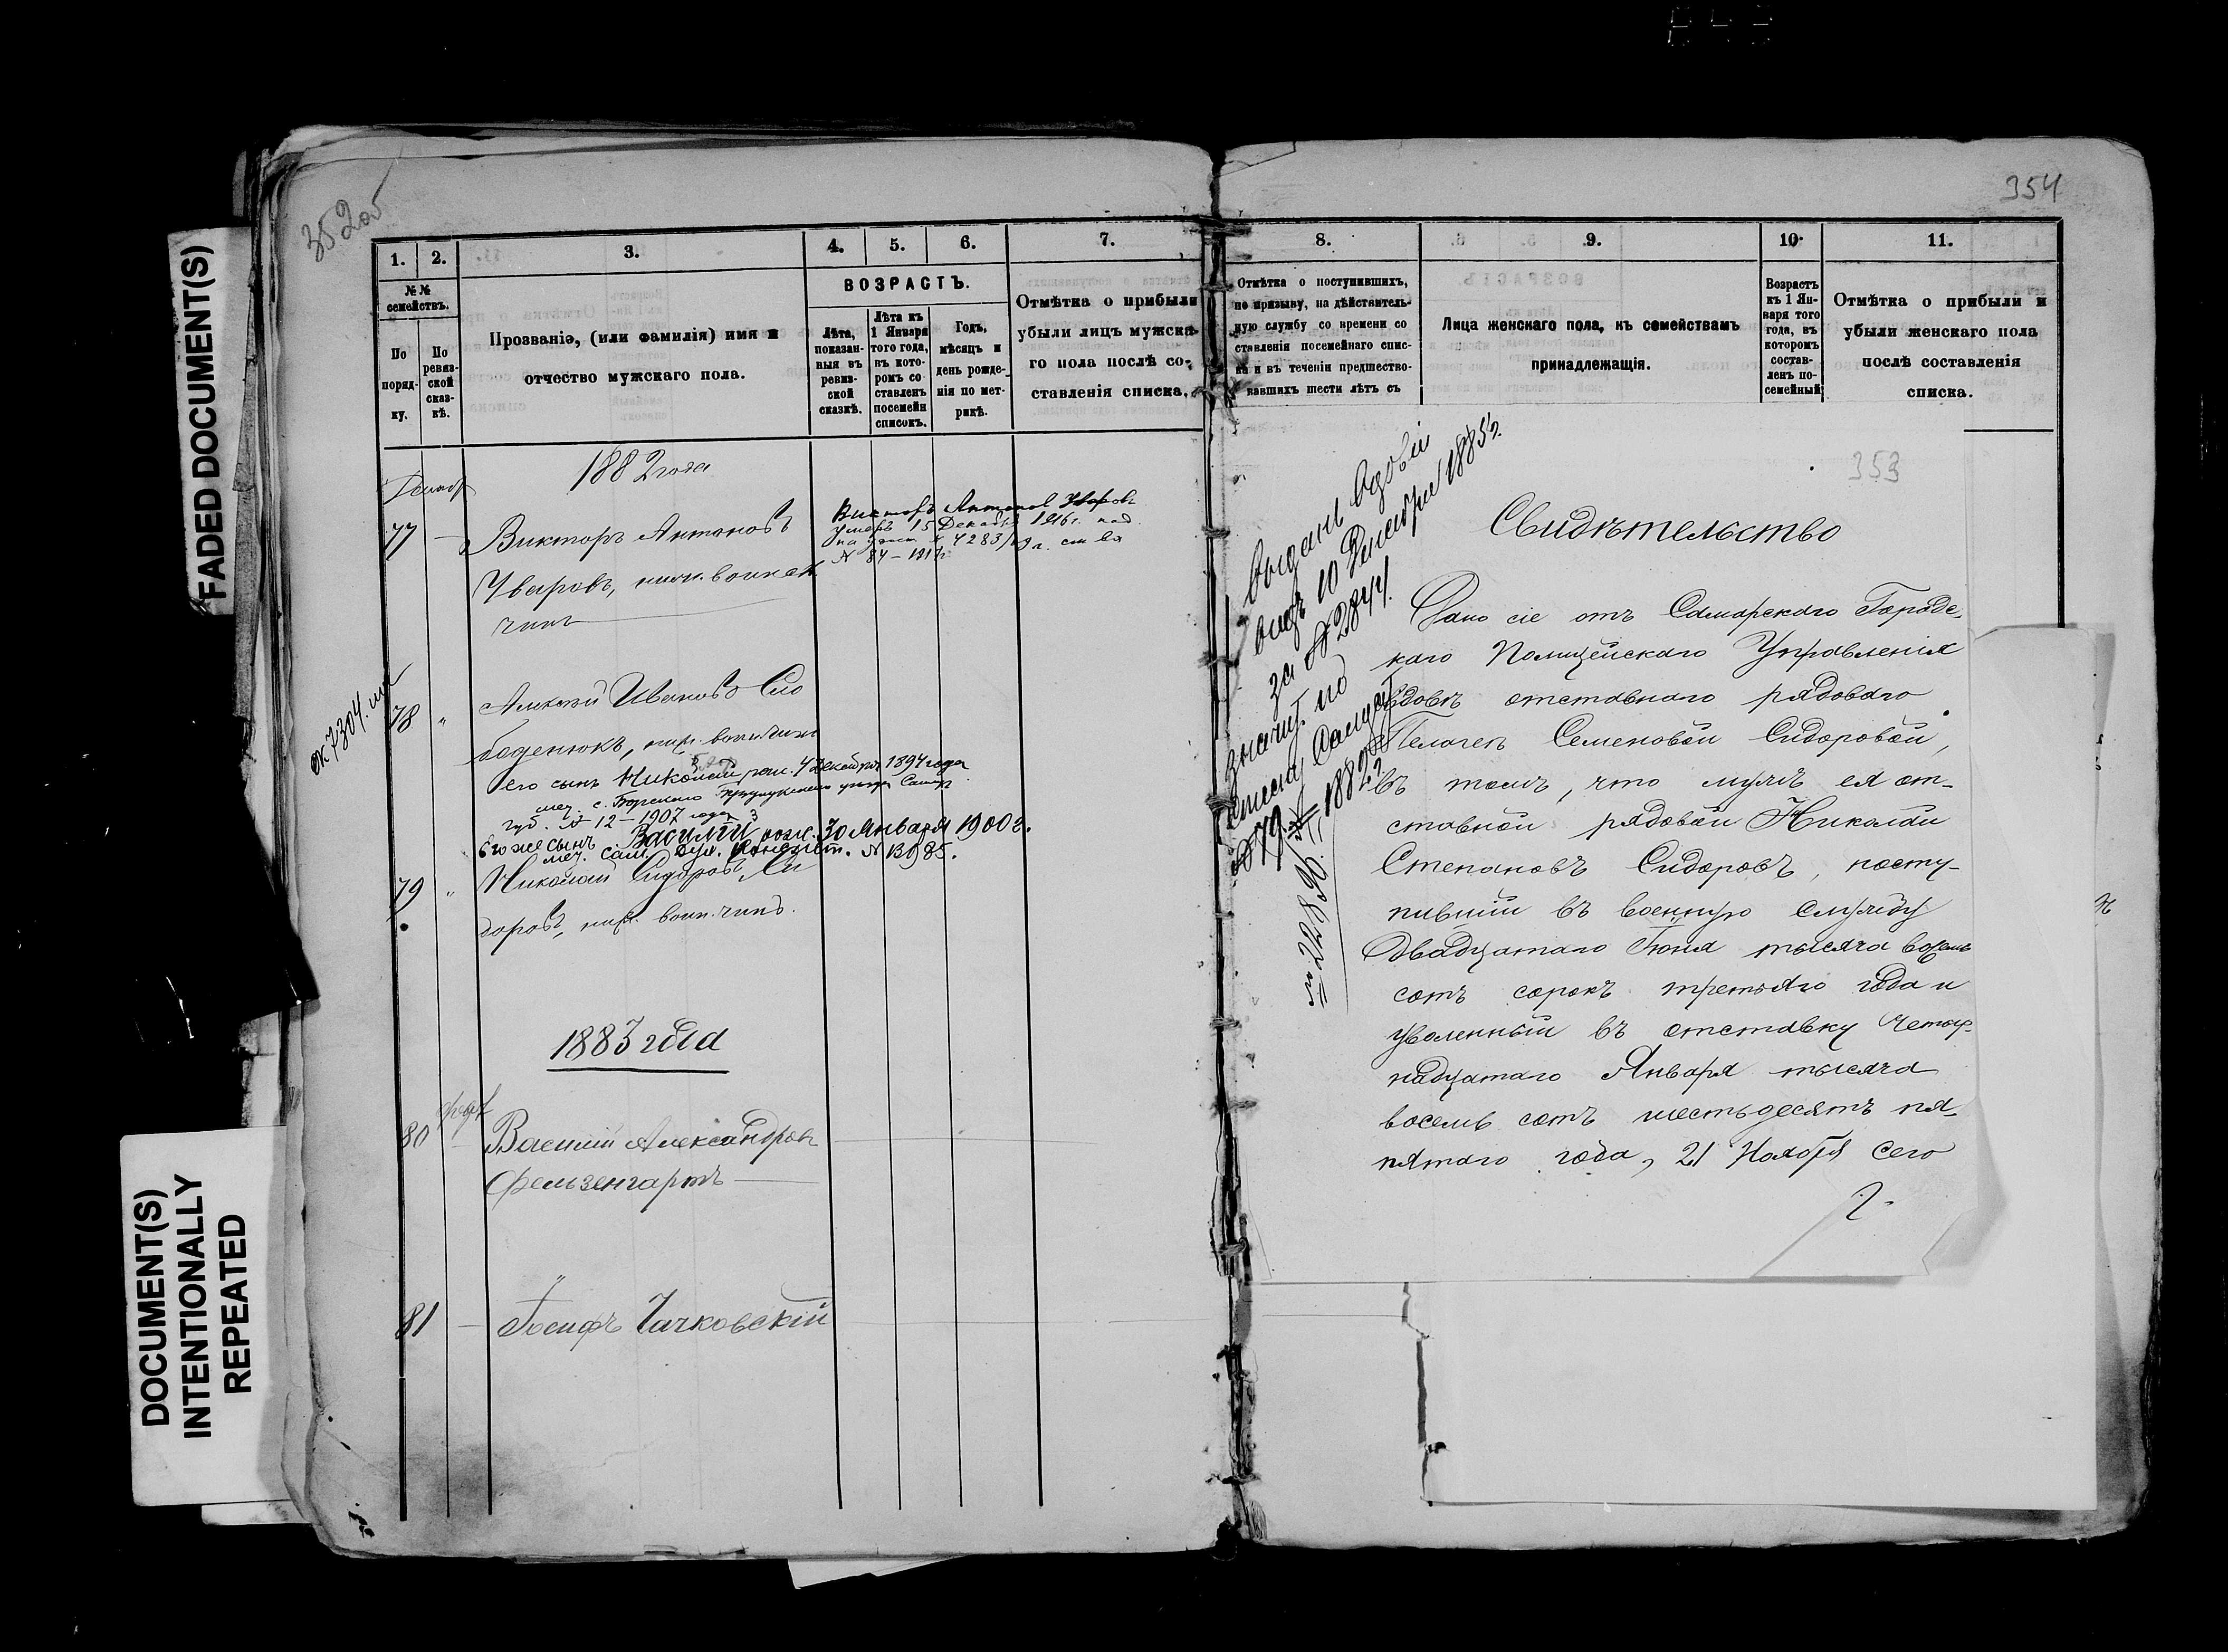 FADED DOCUMENT(S)
DOCUMENT(S)
INTENTIONALLY
REPEATED
352об
1. 2. 3. 4. 5. 6. 7.
№№
семействъ.
По
поряд-
ку.
По
ревиз-
ской
сказ-
кѣ.
Прозваніе, (или фамилія) имя и
отчество мужскаго пола.
ВОЗРАСТЪ.
Лѣта,
показан-
ныя въ
ревиз-
ской
сказкѣ.
Лѣта къ
1 Января
того года,
въ кото-
ромъ со-
ставленъ
посемейн
списокъ.
Годъ,
мѣсяцъ и
день рожде-
нія по мет-
рикѣ.
Отмѣтка о прибыли
убыли лицъ мужска-
го пола послѣ со-
ставленія списка.
1882 года
77 Викторъ Антоновъ
Уваровъ, нижн. воинск
чинъ
Викторъ Антоновъ Уваровъ
умеръ 15 Декабря 1916 г.
№ 84 – 191
78 " Алексѣй Ивановъ Сло
боденюкъ, ниж. воин. чинъ
его сынъ Николай рож. 4 Декабря 1894 года
мет. с. Борского Бузулукского уѣзда Самар
губ. № 12 – 1907 года
Его же сынъ Василій рож. 30 Января 1900 г.
мет. Сам. Дух. Консист. № 13985.
79 " Николай Сидоровъ Си
доровъ, ниж. воин. чинъ.
1883 года
80 Василій Александровъ
Фельзенгартъ
81 Іосифъ Чачковскій
354
8. 9. 10. 11.
Отмѣтка о поступившихъ,
по призыву, на дѣйствитель-
ную службу со времени со
ставленія посемейнаго спис-
ка и въ теченіи предшество-
вавшихъ шести лѣтъ съ
Лица женскаго пола, къ семействамъ
принадлежащія.
Возрастъ
къ 1 Ян-
варя того
года, въ
котором
состав-
ленъ по-
семейный
Отмѣтка о прибыли и
убыли женскаго пола
послѣ составленія
списка.
353
Выданъ вдовій
видъ 10 Декабря 1885 г.
за № 2844.
значит. по
списку
№ 79 1882 г.
Свидѣтельство
Дано сіе отъ Самарскаго Городс-
каго Полицейскаго Управленія
вдовѣ отставнаго рядоваго
Пелагеѣ Семеновой Сидоровой,
въ томъ, что мужъ ея от-
ставной рядовой Николай
Степановъ Сидоровъ, посту-
пившій въ военную службу
двадцатаго Іюня тысяча восемь
сотъ сорокъ третьяго года и
уволенный въ отставку четыр-
надцатаго Января тысяча
восемь сотъ шестьдесятъ пя-
пятаго года, 21 Ноября сего